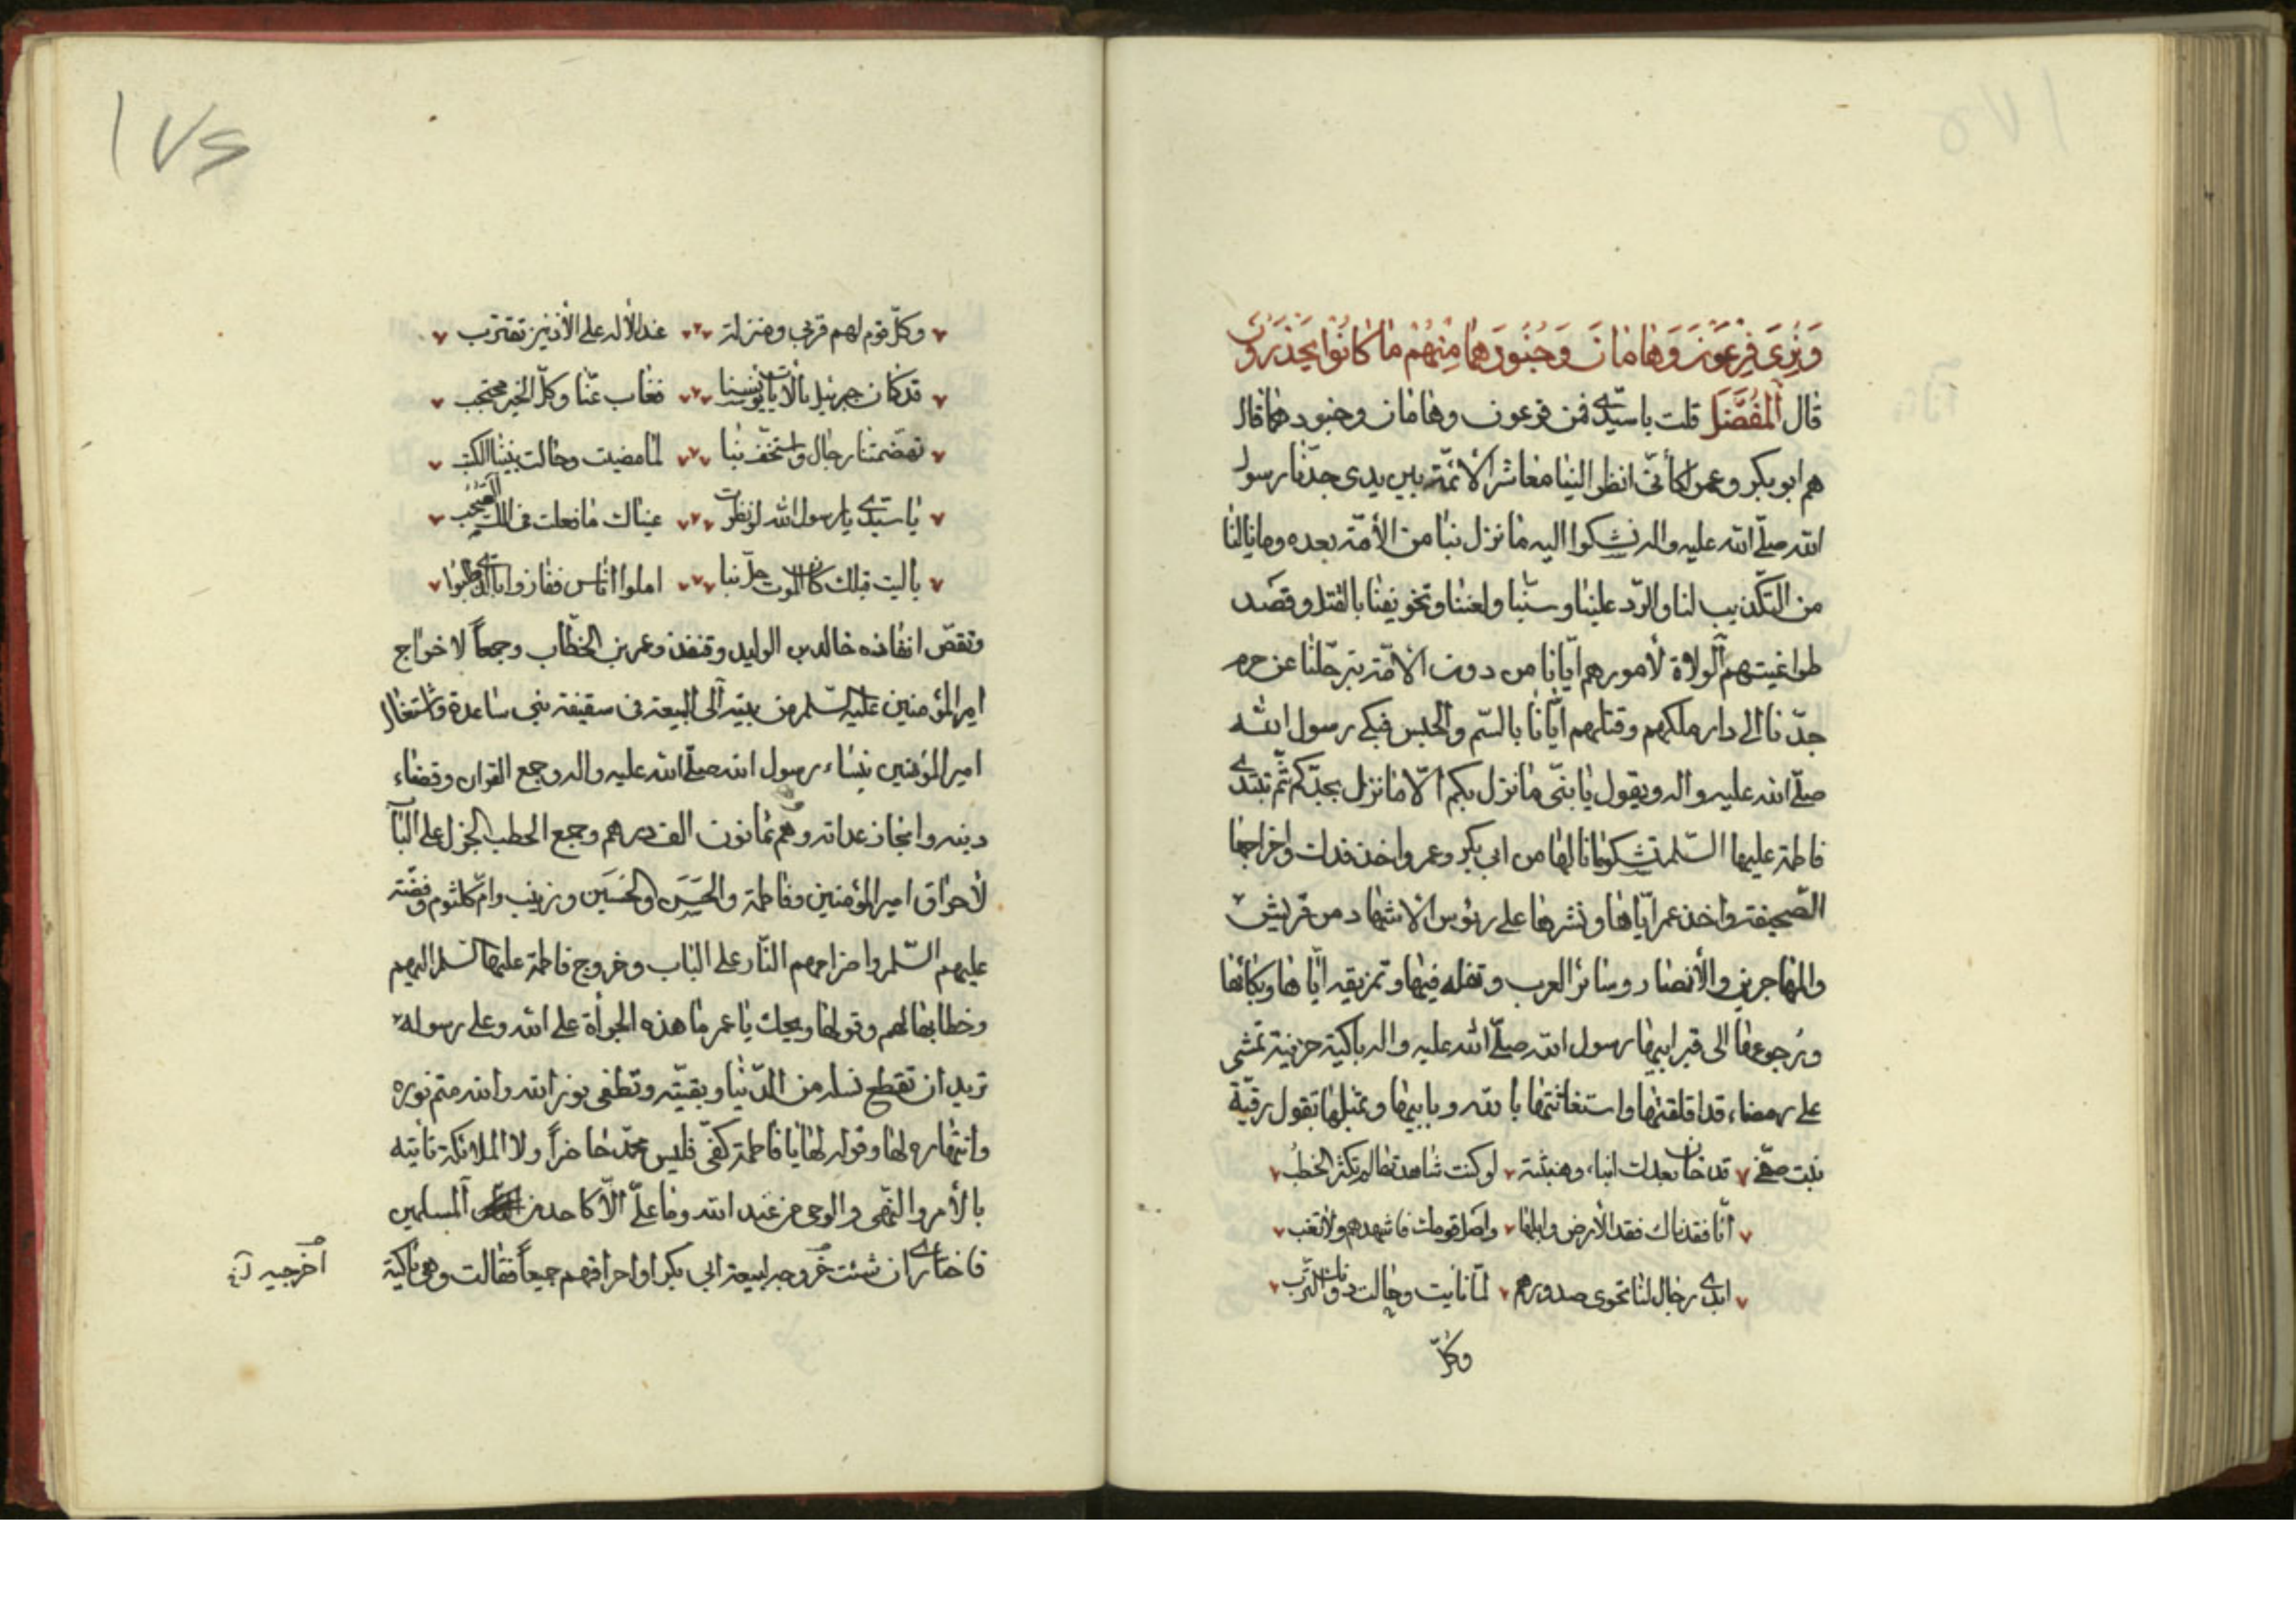 وَنُرِىَ فِرعَوْنَ وَهَامَانَ وَجُنُودَهُمَا مِنْهُمْ مَا كَانُوا يَحْذَرُونَ
قال اَلْمُفَضَّل قلت يا سيّدى فمن فرعون وهامان وجنودهما قال
هم ابو بكر وعمر لكأنّى انظر الينا معاشر الائمّة بين يدى جدّنا رسول
الله صلّى الله عليه واله نشكوا اليه ما نزل بنا من الأمّة بعده وما نالنا
من التكذيب لنا والردّ علينا وسبّنا ولعننا وتخويفنا بالقتل وقصد
طواغيتهم الولاة لأمورهم ايّانا من دون الامّة بترحّلنا عن حرم
جدّنا الى دار ملكهم وقتلهم ايّانا بالسّم والحبس فيبكى رسول الله
صلّى الله عليه واله ويقول يا بنىّ ما نزل بكم الّا ما نزل بجدّكم ثمّ تبتدى
فاطمة عليها السّلم تشكو ما نالها من ابى بكر وعمر واخذ فدك واخراجها
الصّحيفة واخذ عمر ايّاها ونشرها على رئوس الاشهاد من قريش
والمهاجرين والأنصار وسائر العرب وتفله فيها وتمزيقه ايّاها وبكائها
ورجوعها الى قبر ابيها رسول الله صلّى الله عليه واله باكية حزينة تمشى
على رمضاء قد اقلقتها واستغاثتها بالله وبابيها وتمثلها بقول رقيّة
بنت صفى قد كان بعدك انباء وهنبثة لو كنت شاهدها لم تكثر الخطب
انّا فقدناك فقد الأرض وابلها واختل قومك فاشهدهم ولا تغب
ابدى رجال لنا نجوى صدورهم لمّا نايت وحالت دونك الترب
وكلّ
١٧٤
وكلّ قوم لهم قربى ومنزلة عند الاله على الأدنين تقترب
قد كان جبرئيل بالآيات يونسنا فغاب عنّا وكلّ الخير محتجب
تهضّمتنا رجال واستخف بنا لما مضيت وحالت بيننا الكتب
يا سيّدى يا رسول الله لو نظرت عيناك ما فعلت فى الك الصحب
يا ليت قبلك كان الموت حلّ بنا املوا اناس ففازوا بالّذى طلبوا
وتقصّ انفاذه خالد بن الوليد وقنفذ وعمر بن الخطّاب وجمعاً لاخراج
امير المؤمنين عليه السّلم من بيته الى البيعة فى سقيفة بنى ساعدة واشتغال
امير المؤمنين بنساء رسول الله صلّى الله عليه واله وجمع القران وقضاء
دينه وانجاز عداته وهم ثمانون الف درهم وجمع الحطب الجزل على الباب
لأحراق امير المؤمنين وفاطمة والحَسَن والحُسَين وزينب وامّ كلثوم وفضّة
عليهم السّلم واضرامهم النّار على الباب وخروج فاطمة عليها السّلم اليهم
وخطابها لهم وقولها ويحك يا عمر ما هذه الجرأة على الله وعلى رسوله
تريد ان تقطع نسله من الدّنيا وبقيّته وتطفى نور الله والله متم نوره
وانتهاره لها وقوله لها يا فاطمة كفّى فليس محمّد حاضراً ولا الملائكة تأتيه
بالأمر والنّهى والوحى من عند الله وما علىّ الّا كاحد من المسلمين
فاختارى ان شئت خروجه لبيعة ابى بكر او احراقهم جميعاً فقالت وهى باكية
اخرجيه